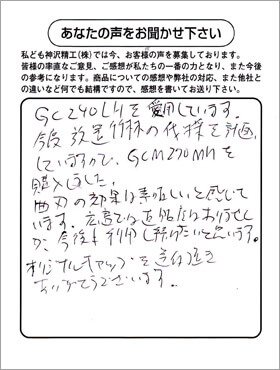 あなたの声をお聞かせ下さい
私ども神沢精工(株)では今、お客様の声を募集しております。
皆様の率直なご意見、ご感想が私たちの一番の力となり、また今後
の参考になります。商品についての感想や弊社の対応、また他社と
の違いなど何でも結構ですので、感想を書いてお送り下さい。
GC240LHを愛用しています。
今般放置竹林の伐採を計画
していますので、GCM270MHを
購入しました。
曲刃の効果は素晴しいと感じて
います。広島では直販店はありません
が、今後も利用し続けたいと思います。
オリジナルキャップを送付頂き
ありがとうございます。